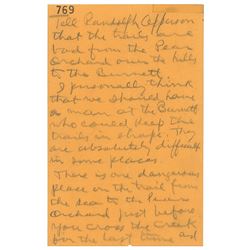 769
Tell Randolph Jefferson
that the trails are
bad from the Pear
Orchard over the hills
to the Burnett
I personally think
that we should have
a man at the Burnett
who could keep the
trails in shape. They
are absolutely difficult
in some places.
There is one dangerous
place on the trail from
the sea to the
Orchard just before
you cross the creek
for the last time and